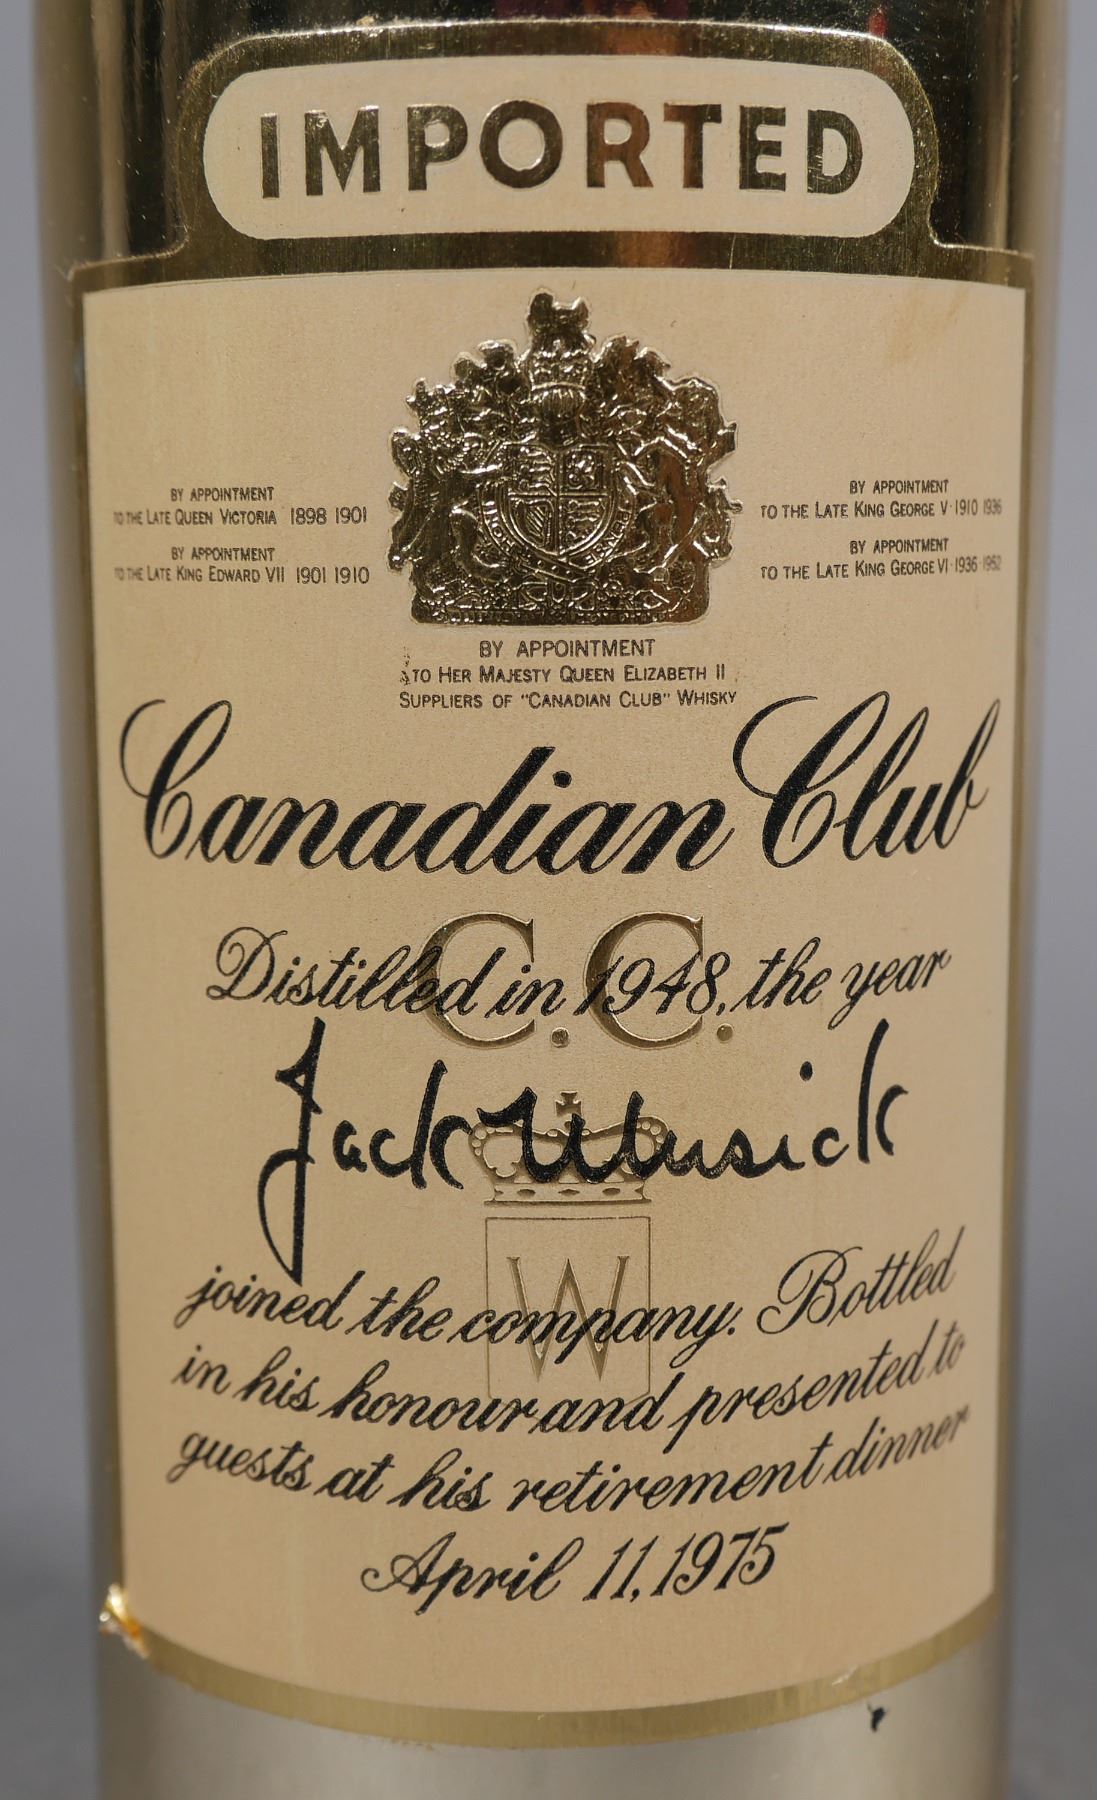 IMPORTED
BY APPOINTMENT
TO THE LATE QUEEN VICTORIA 1898 1901
BY APPOINTMENT
TO THE LATE KING EDWARD VII 1901 1910
BY APPOINTMENT
TO THE LATE KING GEORGE V · 1910 1936
BY APPOINTMENT
TO THE LATE KING GEORGE VI · 1936 · 1952
BY APPOINTMENT
TO HER MAJESTY QUEEN ELIZABETH II
SUPPLIERS OF "CANADIAN CLUB" WHISKY
Canadian Club
C.C.
Distilled in 1948, the year
Jack Musick
W
joined the company. Bottled
in his honour and presented to
guests at his retirement dinner
April 11, 1975